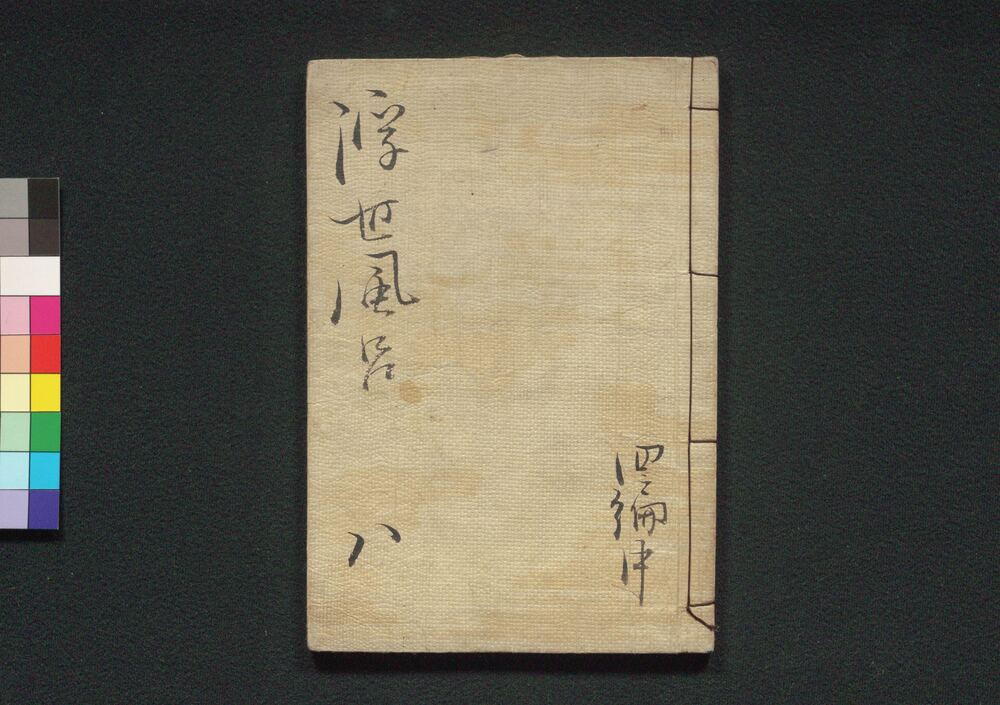 四編中
浮世風呂
八